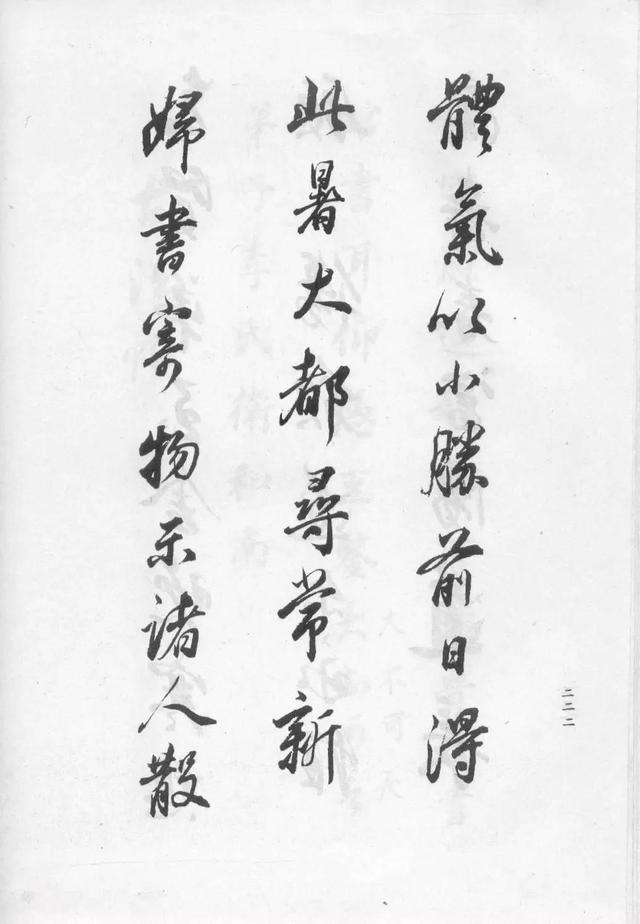 體氣以小勝前日得
此暑大都尋常新
婦書寄物示諸人散
二二二